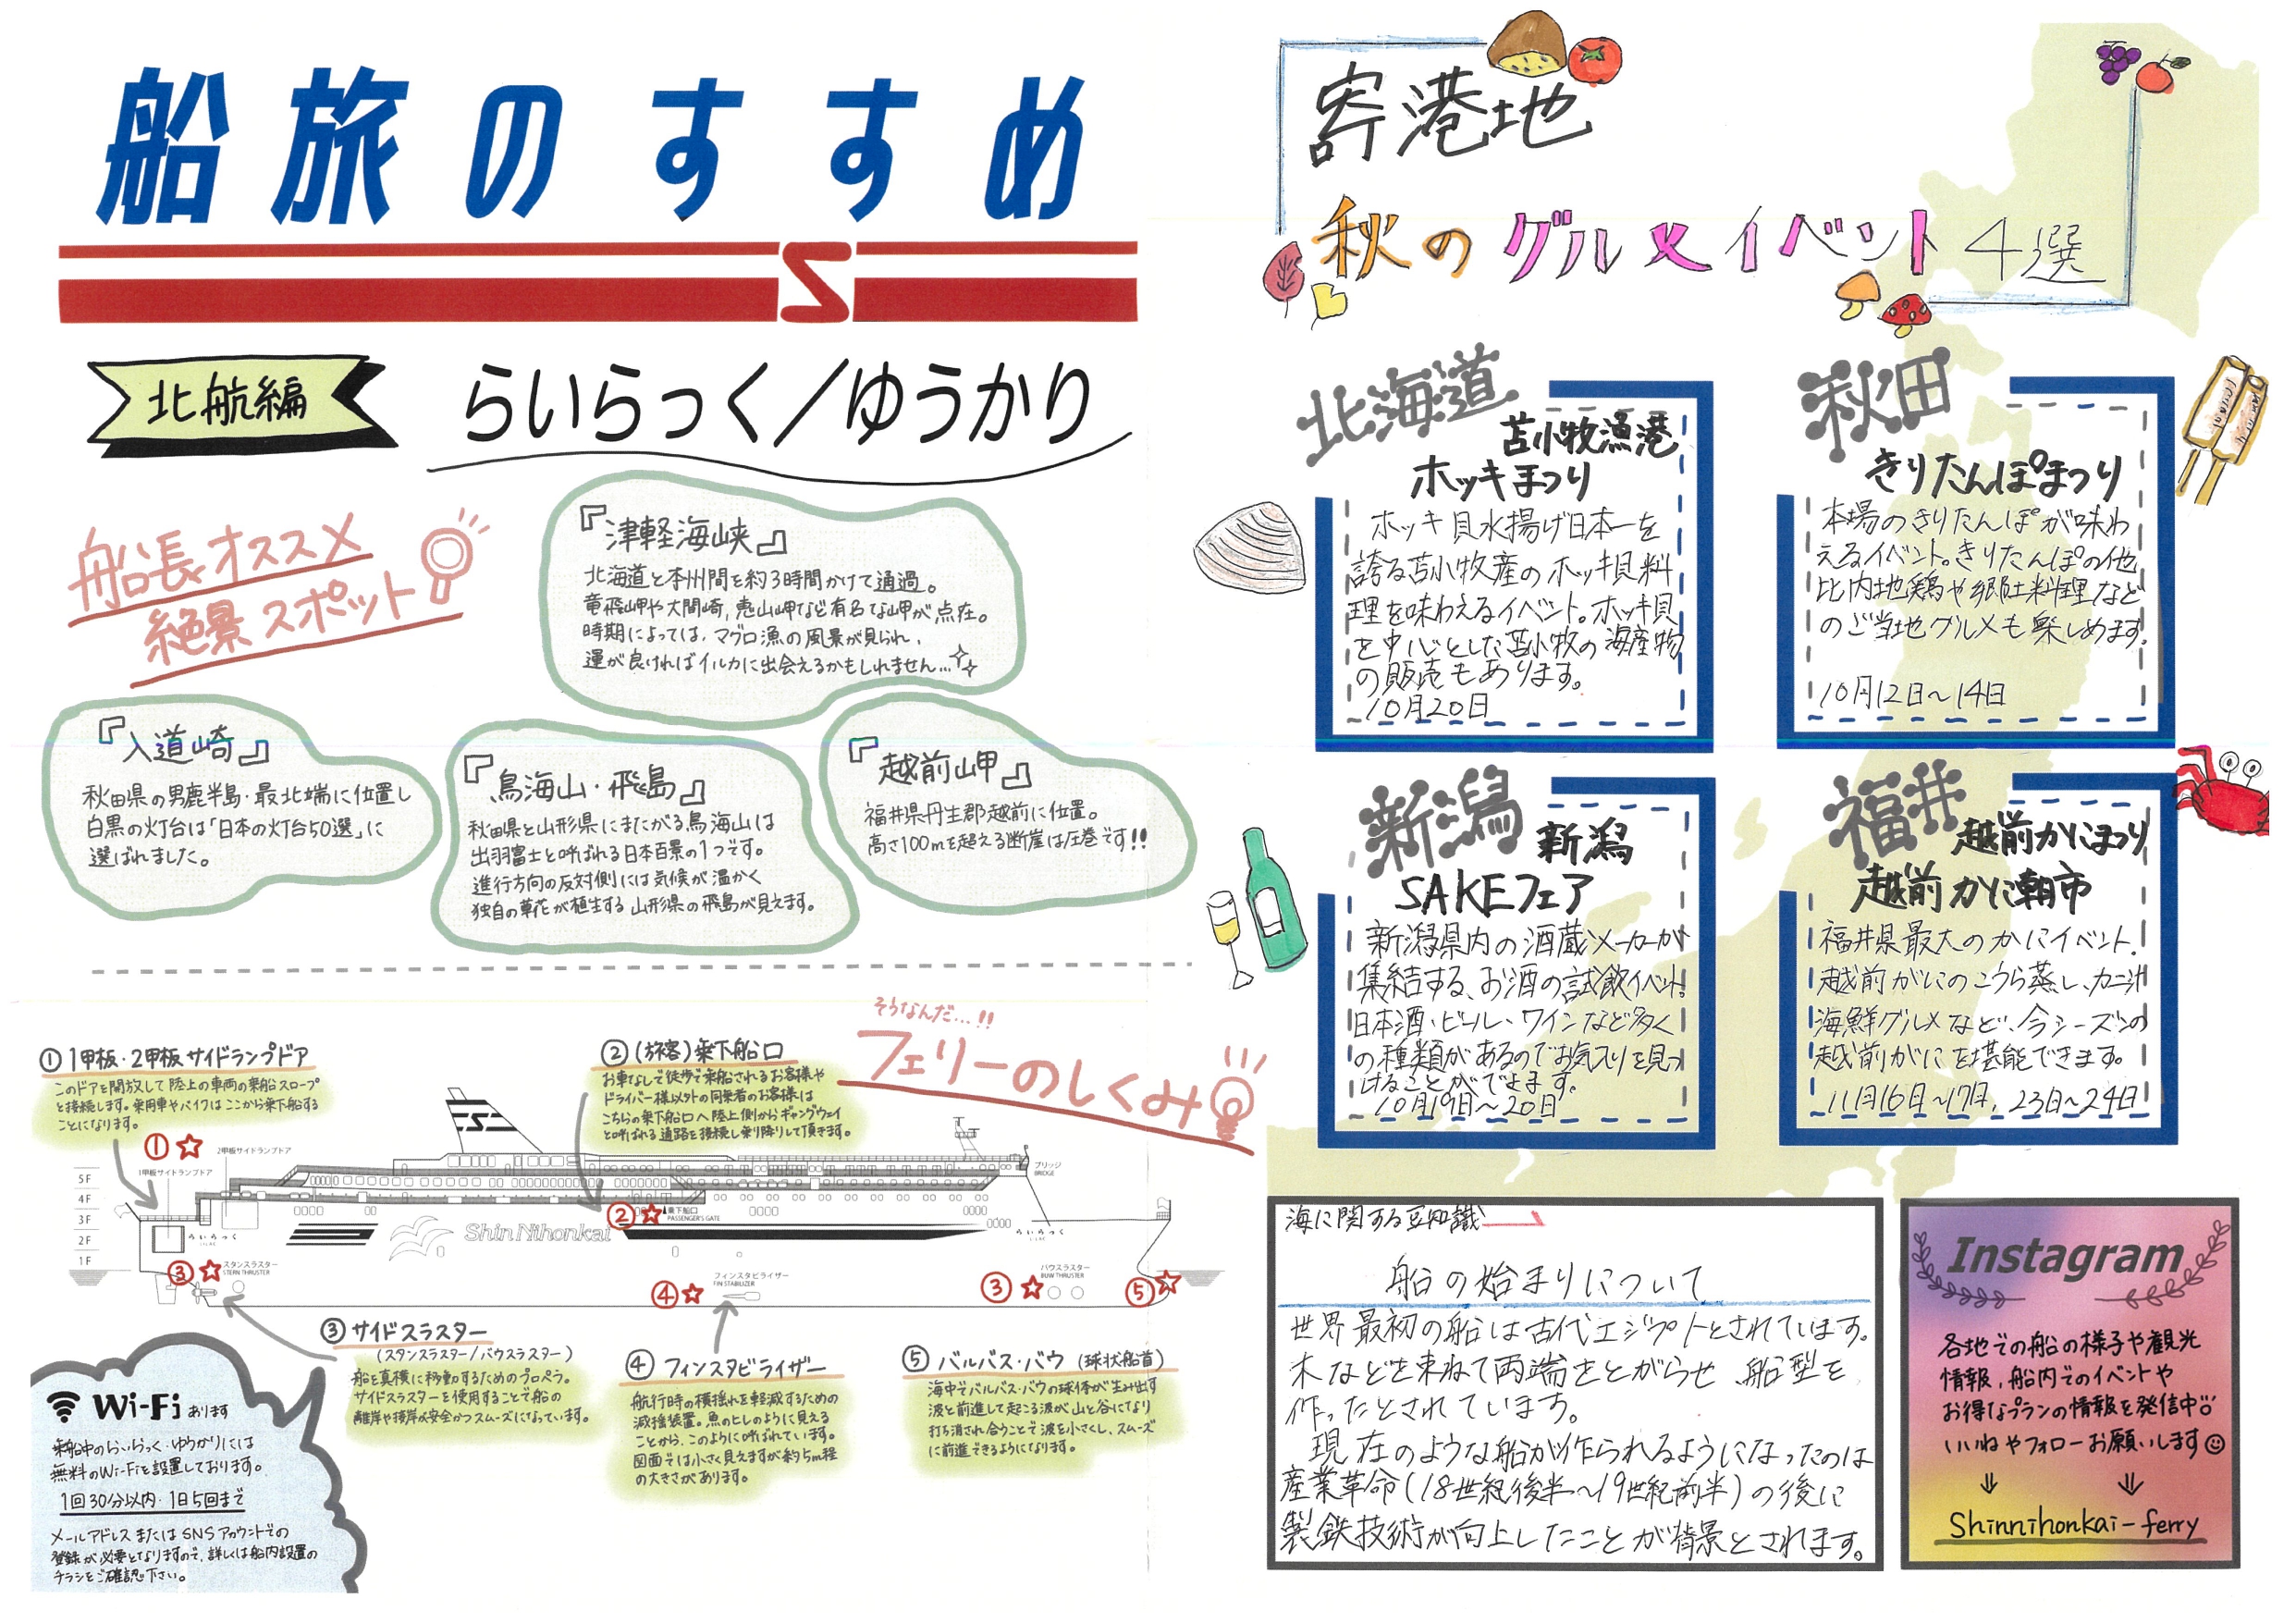 船旅のすすめ
北航編
らいらっく/ゆうかり
船長オススメ
絶景スポット
『津軽海峡』
北海道と本州間を約3時間かけて通過。
竜飛岬や大間崎,恵山岬など有名な岬が点在。
時期によっては,マグロ漁の風景が見られ,
運が良ければイルカに出会えるかもしれません...
『入道崎』
秋田県の男鹿半島・最北端に位置し
白黒の灯台は「日本の灯台50選」に
選ばれました。
『鳥海山・飛島』
秋田県と山形県にまたがる鳥海山は
出羽富士と呼ばれる日本百景の1つです。
進行方向の反対側には気候が温かく
独自の草花が植生する山形県の飛島が見えます。
『越前岬』
福井県丹生郡越前に位置。
高さ100mを超える断崖は圧巻です!!
そうなんだ...!!
フェリーのしくみ
① 1甲板・2甲板サイドランプドア
このドアを開放して陸上の車両の乗船スロープ
と接続します。乗用車やバイクはここから乗下船する
ことになります。
② (旅客)乗下船口
お車なしで徒歩で乗船されるお客様や
ドライバー様以外の同乗者のお客様は
こちらの乗下船口へ陸上側からギャングウェイ
と呼ばれる通路を接続し乗り降りして頂きます。
①
2甲板サイドランプドア
1甲板サイドランプドア
ブリッジ
BRIDGE
5F
4F
3F
2F
1F
②
乗下船口
PASSENGER'S GATE
Shin Nihonkai
らいらっく
LILAC
らいらっく
③
スタンスラスター
STERN THRUSTER
④
フィンスタビライザー
FIN STABILIZER
③
バウスラスター
BOW THRUSTER
⑤
③ サイドスラスター
(スタンスラスター/バウスラスター)
船を真横に移動するためのプロペラ。
サイドスラスターを使用することで船の
離岸や接岸が安全かつスムーズになっています。
④ フィンスタビライザー
航行時の横揺れを軽減するための
減揺装置。魚のヒレのように見える
ことから,このように呼ばれています。
図面では小さく見えますが約5m程
の大きさがあります。
⑤ バルバス・バウ (球状船首)
海中でバルバス・バウの球体が生み出す
波と前進して起こる波が山と谷になり
打ち消され合うことで波を小さくし,スムーズ
に前進できるようになります。
Wi-Fi あります
乗船中のらいらっく・ゆうかりには
無料のWi-Fiを設置しております。
1回30分以内・1日5回まで
メールアドレスまたはSNSアカウントでの
登録が必要となりますので,詳しくは船内設置の
チラシをご確認下さい。
寄港地
秋のグルメイベント4選
北海道
苫小牧漁港
ホッキまつり
ホッキ貝水揚げ日本一を
誇る苫小牧産のホッキ貝料
理を味わえるイベント。ホッキ貝
を中心とした苫小牧の海産物
の販売もあります。
10月20日
秋田
きりたんぽまつり
本場のきりたんぽが味わ
えるイベント。きりたんぽの他
比内地鶏や郷土料理など
のご当地グルメも楽しめます。
10月12日~14日
新潟
新潟
SAKEフェア
新潟県内の酒蔵メーカーが
集結する、お酒の試飲イベント。
日本酒・ビール・ワインなど多く
の種類があるのでお気入りを見つ
けることができます。
10月19日~20日
福井
越前かにまつり
越前かに朝市
福井県最大のかにイベント。
越前がにのこうら蒸し、カニ汁
海鮮グルメなど、今シーズンの
越前がにを堪能できます。
11月16日~17日, 23日~24日
海に関する豆知識
船の始まりについて
世界最初の船は古代エジプトとされています。
木などを束ねて両端をとがらせ、船型を
作ったとされています。
現在のような船が作られるようになったのは
産業革命(18世紀後半~19世紀前半)の後に
製鉄技術が向上したことが背景とされます。
Instagram
各地での船の様子や観光
情報,船内でのイベントや
お得なプランの情報を発信中
いいねやフォローお願いします☺
⇓ ⇓
Shinnihonkai-ferry